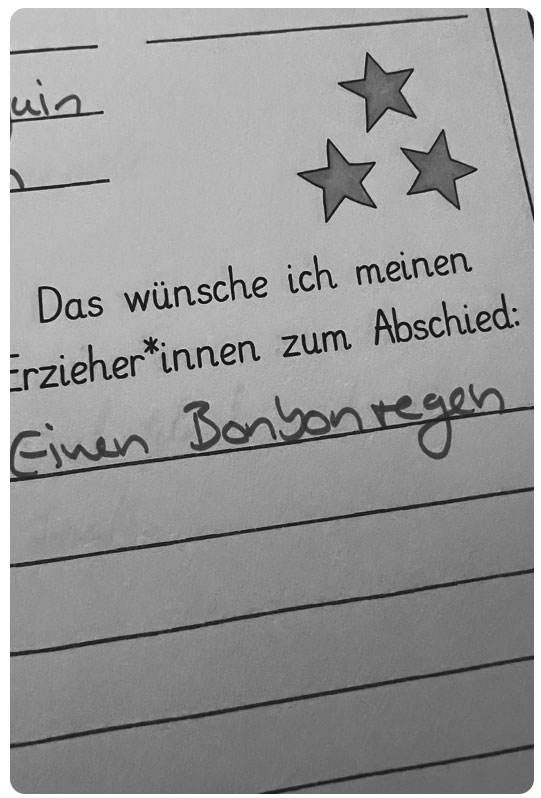 Das wünsche ich meinen
Erzieher*innen zum Abschied:
Einen Bonbonregen